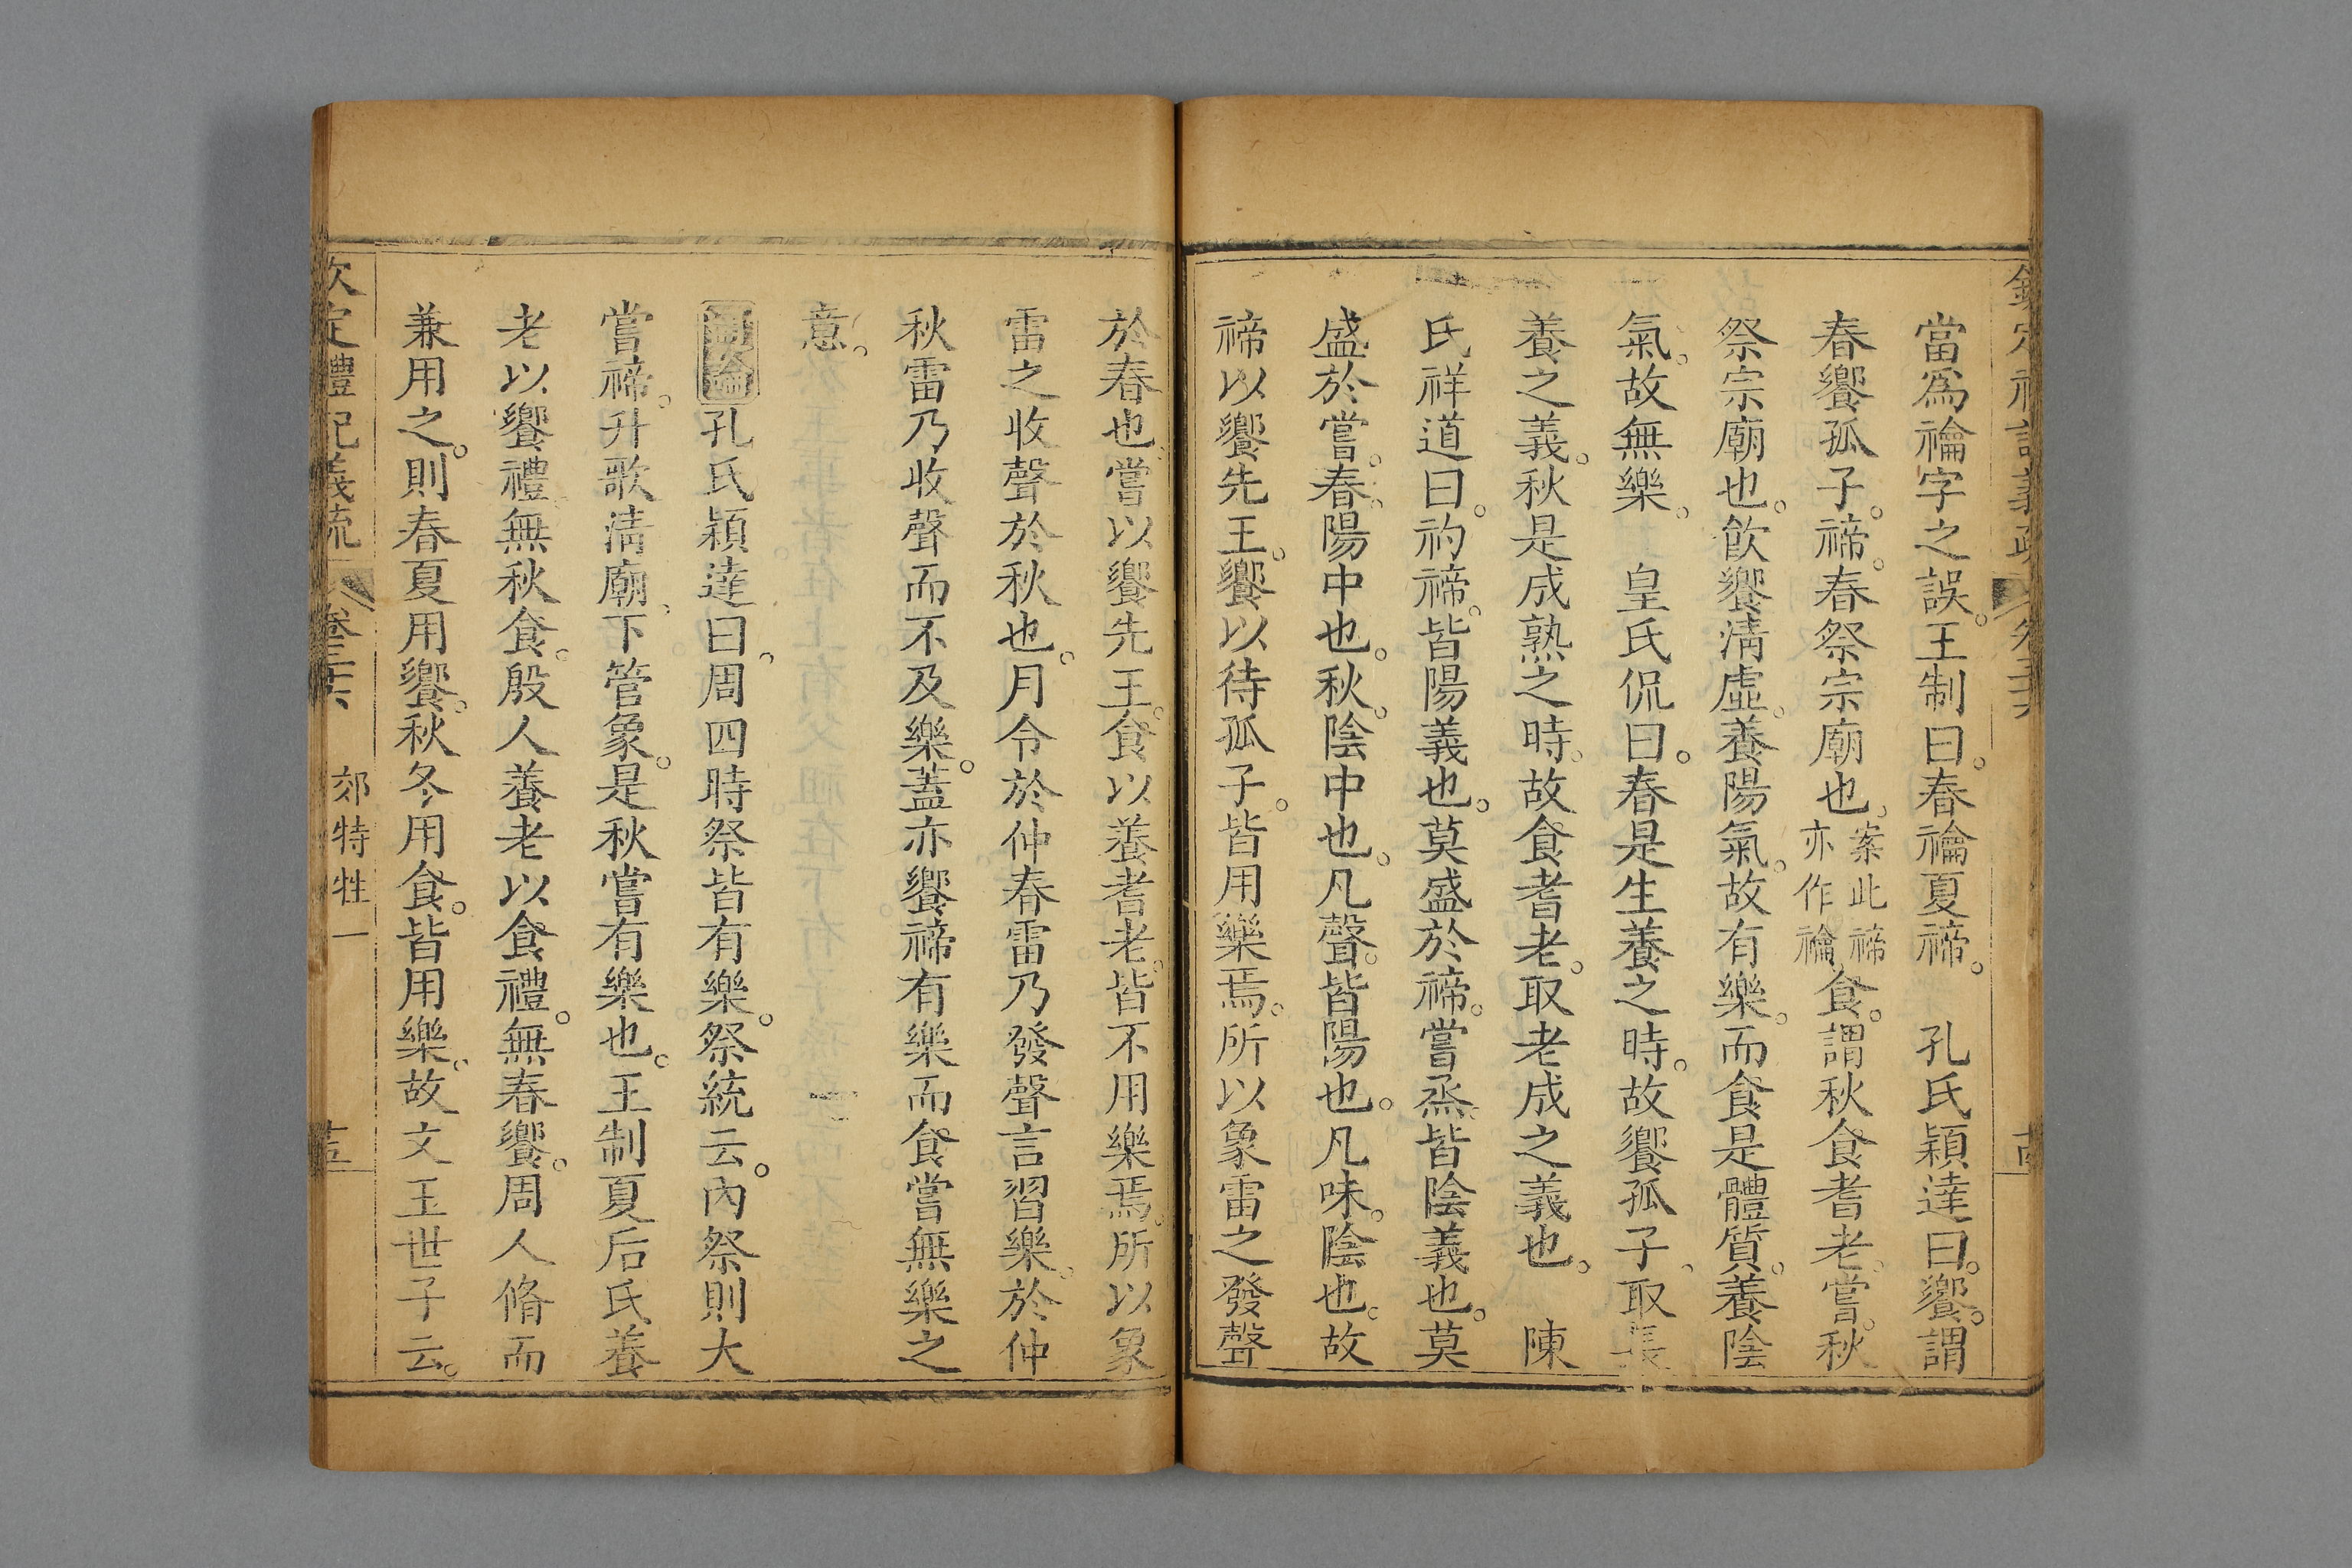 當爲禴字之誤。王制曰。春禴夏禘。　孔氏穎達曰。饗。謂
春饗孤子。禘。春祭宗廟也。案此禘亦作禴食。謂秋食耆老。嘗。秋
祭宗廟也。飮饗淸虛。養陽氣。故有樂。而食是體質。養陰
氣。故無樂。　皇氏侃曰。春是生養之時。故饗孤子、取長
養之義。秋是成熟之時。故食耆老。取老成之義也。　陳
氏祥道曰。礿禘。皆陽義也。莫盛於禘。嘗烝。皆陰義也。莫
盛於嘗。春。陽中也。秋。陰中也。凡聲。皆陽也。凡味。陰也。故
禘以饗先王。饗以待孤子。皆用樂焉。所以象雷之發聲
於春也。嘗以饗先王。食以養耆老。皆不用樂焉。所以象
雷之收聲於秋也。月令於仲春雷乃發聲言習樂。於仲
秋雷乃收聲而不及樂。蓋亦饗禘有樂而食嘗無樂之
意。
通論孔氏穎達曰、周四時祭皆有樂。祭統云。內祭則大
嘗禘。升歌淸廟、下管象。是秋嘗有樂也。王制夏后氏養
老以饗禮無秋食。殷人養老以食禮。無春饗。周人脩而
兼用之。則春夏用饗。秋冬用食。皆用樂。故文王世子云。
欽定禮記義疏　卷三十六　郊特牲一　十五